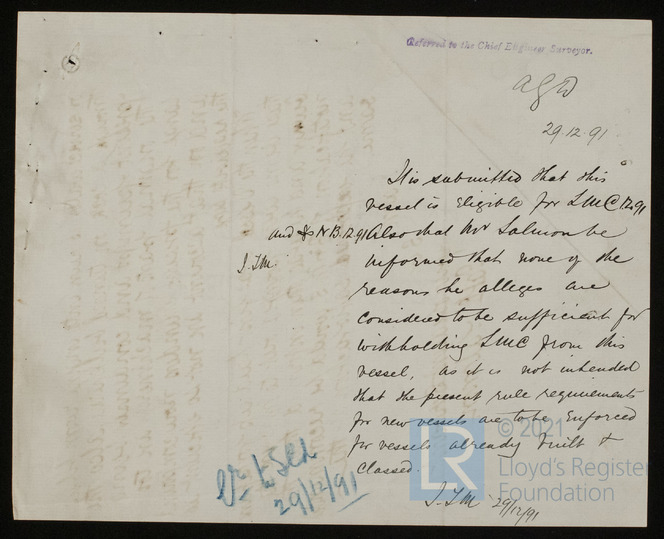 Referred to the Chief Engineer Surveyor.
29.12.91
It is submitted that this
vessel is eligible for LMC 12.91
and NB.12.91 Also that Mr Salmon be
informed that none of the
reasons he alleges are
considered to be sufficient for
withholding LMC from this
vessel, as it is not intended
that the present rule requirements
for new vessels are to be enforced
for vessels already built &
classed.
29/12/91
29/12/91
LR
© 2021
Lloyd's Register
Foundation